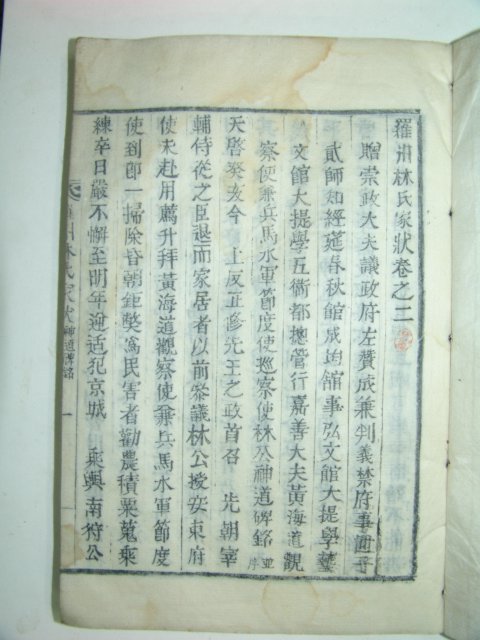 羅州林氏家狀卷之二
贈崇政大夫議政府左贊成兼判義禁府事世子
貳師知經筵春秋館成均館事弘文館大提學藝
文館大提學五衛都摠管行嘉善大夫黃海道觀
察使兼兵馬水軍節度使巡察使林公神道碑銘並序
天啓癸亥今 上反正修先王之政首召 先朝宰
輔侍從之臣退而家居者以前參議林公授安東府
使未赴用薦升拜黃海道觀察使兼兵馬水軍節度
使到郎一掃除昏朝鉅弊爲民害者勸農積粟蒐乘
練卒日嚴不懈至明年迎适犯京城 乘輿南狩公
羅州林氏家狀 神道碑銘 一